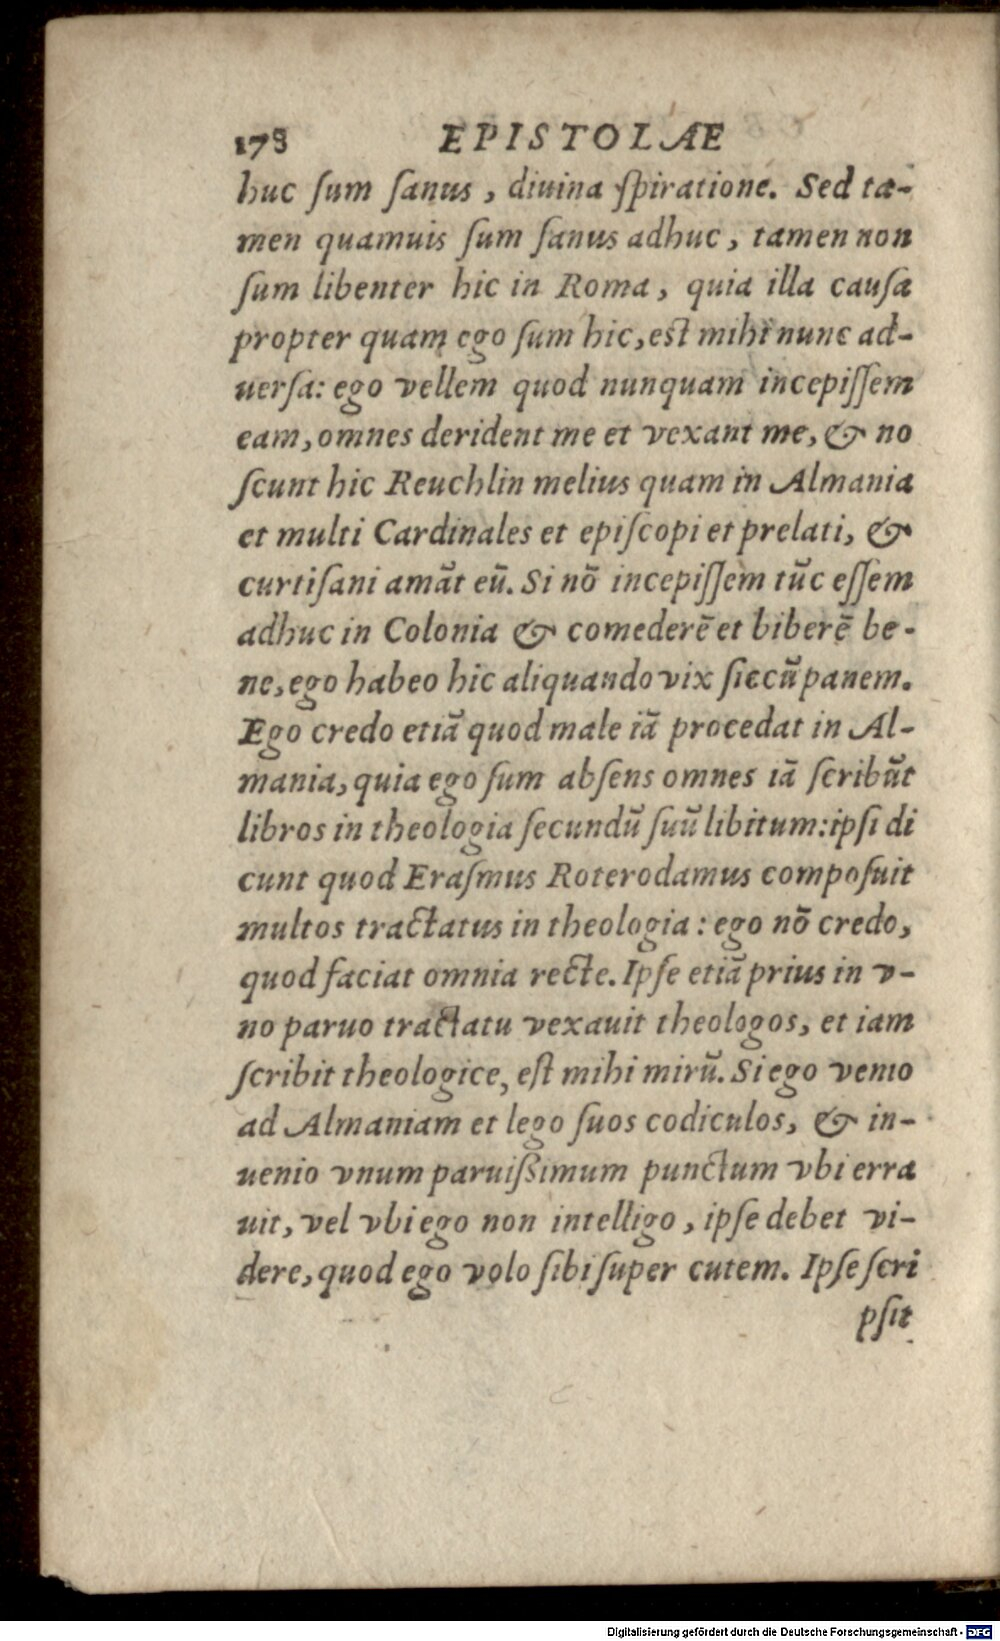 178 EPISTOLÆ
huc ſum ſanus, diuina ſpiratione. Sed ta-
men quamuis ſum ſanus adhuc, tamen non
ſum libenter hic in Roma, quia illa cauſa
propter quam ego ſum hic, eſt mihi nunc ad-
uerſa: ego vellem quod nunquam incepiſſem
eam, omnes derident me et vexant me, & no
ſcunt hic Reuchlin melius quam in Almania
et multi Cardinales et epiſcopi et prelati, &
curtiſani amāt eū. Si nō incepiſſem tūc eſſem
adhuc in Colonia & comederē et biberē be-
ne, ego habeo hic aliquando vix ſiccū panem.
Ego credo etiā quod male iā procedat in Al-
mania, quia ego ſum abſens omnes iā ſcribūt
libros in theologia ſecundū ſuū libitum: ipſi di
cunt quod Eraſmus Roterodamus compoſuit
multos tractatus in theologia: ego nō credo,
quod faciat omnia recte. Ipſe etiā prius in v-
no paruo tractatu vexauit theologos, et iam
ſcribit theologice, eſt mihi mirū. Si ego venio
ad Almaniam et lego ſuos codiculos, & in-
uenio vnum paruiſsimum punctum vbi erra
uit, vel vbi ego non intelligo, ipſe debet vi-
dere, quod ego volo ſibi ſuper cutem. Ipſe ſcri
pſit
Digitalisierung gefördert durch die Deutsche Forschungsgemeinschaft - DFG